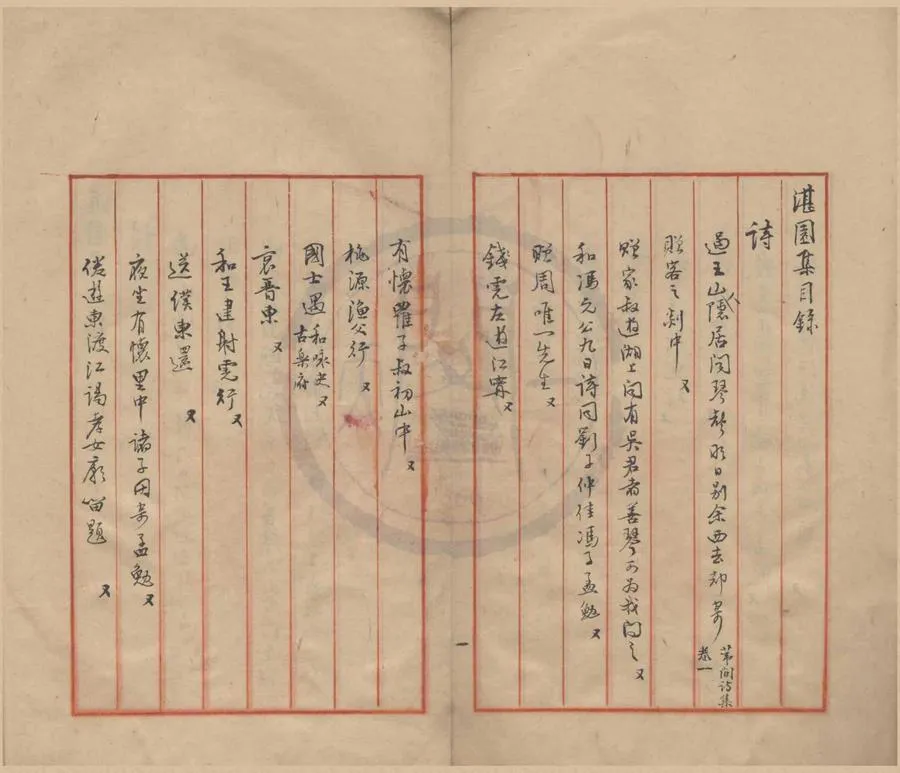 湛園集目錄
詩
過王山人隱居聞琴於明日別余西去却寄 葦間詩集卷一
贈客之剡中 又
贈家叔遊湖上聞有吳君者善琴可為我問之 又
和馮元公九日詩同劉子仲佳馮子孟勉 又
贈周唯一先生 又
錢霍左遊江寧 又
有懷羅子叔初山中 又
桃源漁父行 又
國士遇 和詠史古樂府 又
哀晉東 又
和王建射虎行 又
送僕東還 又
夜坐有懷里中諸子因寄孟勉 又
後遊東渡江謁孝女廟留題 又
一